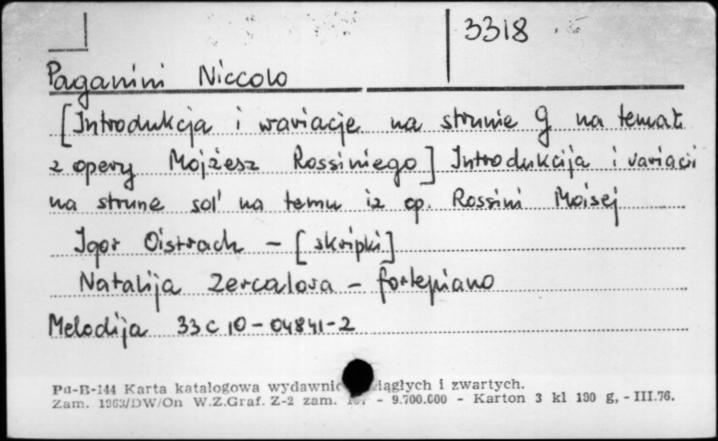 3318
Paganini Niccolo
[Introdukcja i wariacje na strunie G na temat
z opery Mojżesz Rossiniego] Introdukcija i variacii
na strune sol' na temu iz op. Rossini Moisej
Igor Oistrach - [skripki]
Natalija Zercalova - fortepiano
Melodija 33 C 10-04841-2
Pu-B-144 Karta katalogowa wydawnic ciągłych i zwartych.
Zam. 1963/DW/On W.Z.Graf. Z-2 zam. - 9.700.000 - Karton 3 kl 190 g, - III.76.